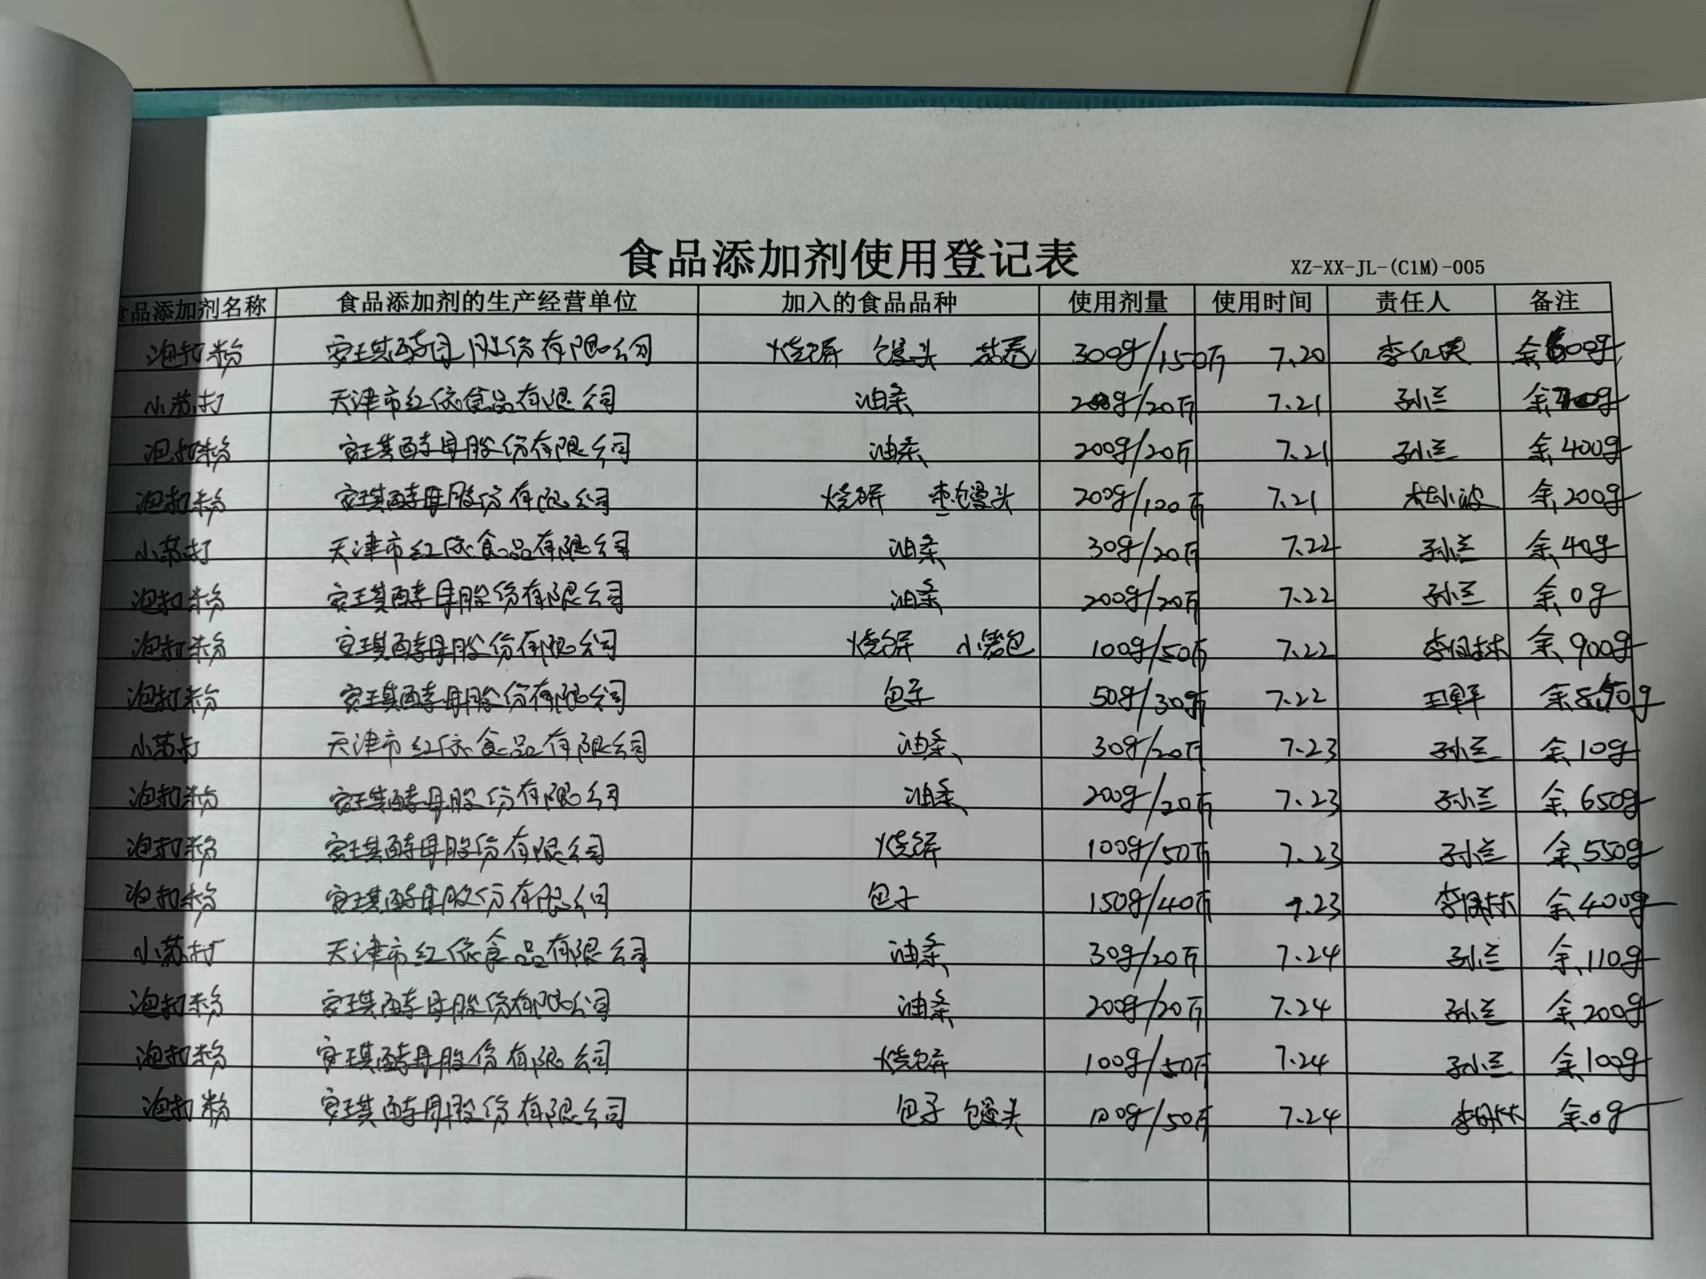 食品添加剂使用登记表 XZ-XX-JL-(C1M)-005
食品添加剂名称 食品添加剂的生产经营单位 加入的食品品种 使用剂量 使用时间 责任人 备注
泡打粉 安琪酵母股份有限公司 烧饼 馒头 300g/150斤 7.20 余600g
小苏打 天津市红依食品有限公司 油条 200g/20斤 7.21 孙兰 余
泡打粉 安琪酵母股份有限公司 油条 200g/20斤 7.21 孙兰 余400g
泡打粉 安琪酵母股份有限公司 烧饼 枣馒头 200g/100斤 7.21 杜小波 余200g
小苏打 天津市红依食品有限公司 油条 30g/20斤 7.22 孙兰 余40g
泡打粉 安琪酵母股份有限公司 油条 200g/20斤 7.22 孙兰 余0g
泡打粉 安琪酵母股份有限公司 烧饼 小笼包 100g/50斤 7.22 余900g
泡打粉 安琪酵母股份有限公司 包子 50g/30斤 7.22 余850g
小苏打 天津市红依食品有限公司 油条 30g/20斤 7.23 孙兰 余10g
泡打粉 安琪酵母股份有限公司 油条 200g/20斤 7.23 孙兰 余650g
泡打粉 安琪酵母股份有限公司 烧饼 100g/50斤 7.23 孙兰 余550g
泡打粉 安琪酵母股份有限公司 包子 150g/40斤 7.23 余400g
小苏打 天津市红依食品有限公司 油条 30g/20斤 7.24 孙兰 余110g
泡打粉 安琪酵母股份有限公司 油条 200g/20斤 7.24 孙兰 余200g
泡打粉 安琪酵母股份有限公司 烧饼 100g/50斤 7.24 孙兰 余100g
泡打粉 安琪酵母股份有限公司 包子 馒头 100g/50斤 7.24 余0g